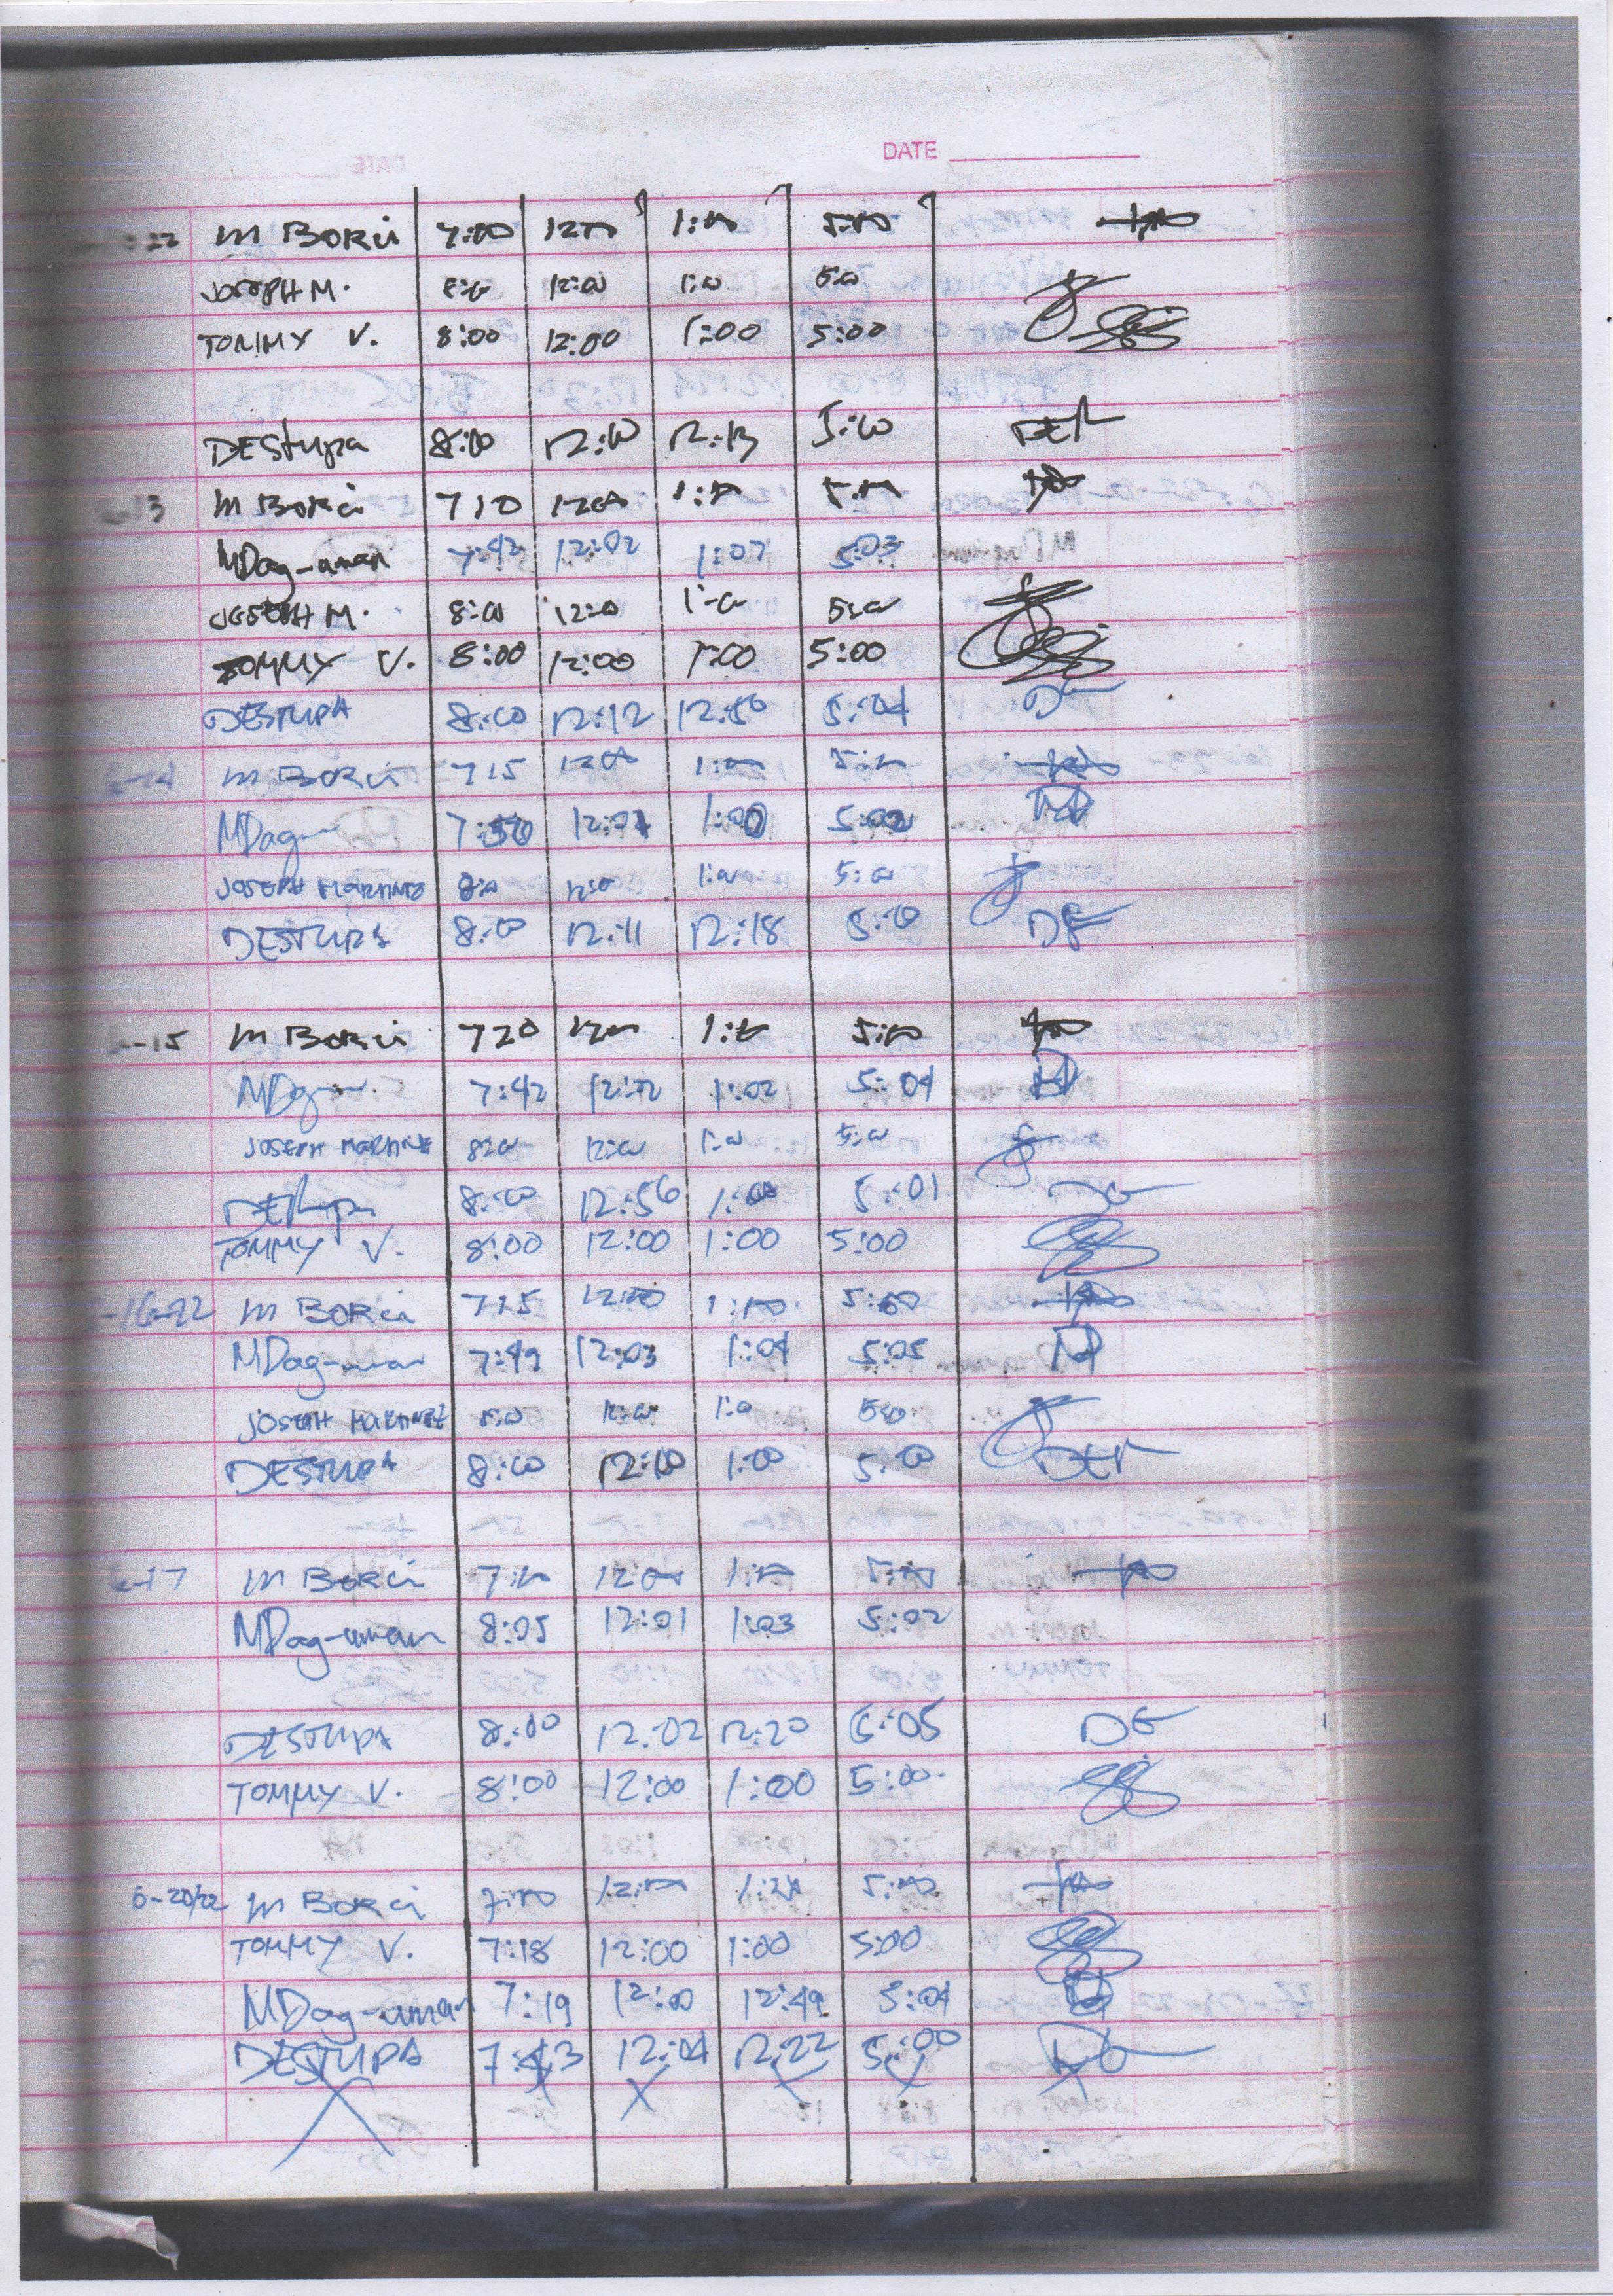 DATE
22 M BORCI 7:00 1200 1:00 5:00
JOSEPH M. 8:00 12:00 1:00 5:00
TOMMY V. 8:00 12:00 1:00 5:00
DEStupa 8:00 12:10 12:13 5:00
6-13 M BORCI 710 1200 1:00 5:00
MDag-uman 7:42 12:02 1:07 5:03
JOSEPH M. 8:00 12:00 1:00 5:00
TOMMY V. 8:00 12:00 1:00 5:00
DESTUPA 8:00 12:12 12:50 5:04
6-14 M BORCI 715 1200 1:00 5:00
MDag 12:01 1:00 5:02
JOSEPH MARTINEZ 8:00 12:00 1:00 5:00
DESTUPA 8:00 12:11 12:18 5:10
6-15 M BORCI 720 1200 1:00 5:00
MDag 7:42 12:02 1:02 5:04
JOSEPH MARTINEZ 8:00 12:00 1:00 5:00
DEStupa 8:00 12:56 1:00 5:01
TOMMY V. 8:00 12:00 1:00 5:00
-16-22 M BORCI 715 12:00 1:00 5:00
MDag-uman 7:49 12:03 1:04 5:05
JOSEPH MARTINEZ 8:00 12:00 1:00 5:00
DESTUPA 8:00 12:10 1:00 5:00
6-17 M BORCI 7:00 1200 1:00 5:00
MDag-uman 8:05 12:01 1:03 5:02
DESTUPA 8:00 12:02 12:20 5:05
TOMMY V. 8:00 12:00 1:00 5:00
6-20/22 M BORCI 7:00 12:00 1:00 5:00
TOMMY V. 7:18 12:00 1:00 5:00
MDag-uman 7:19 12:00 12:49 5:04
DESTUPA 7:43 12:04 12:22 5:00